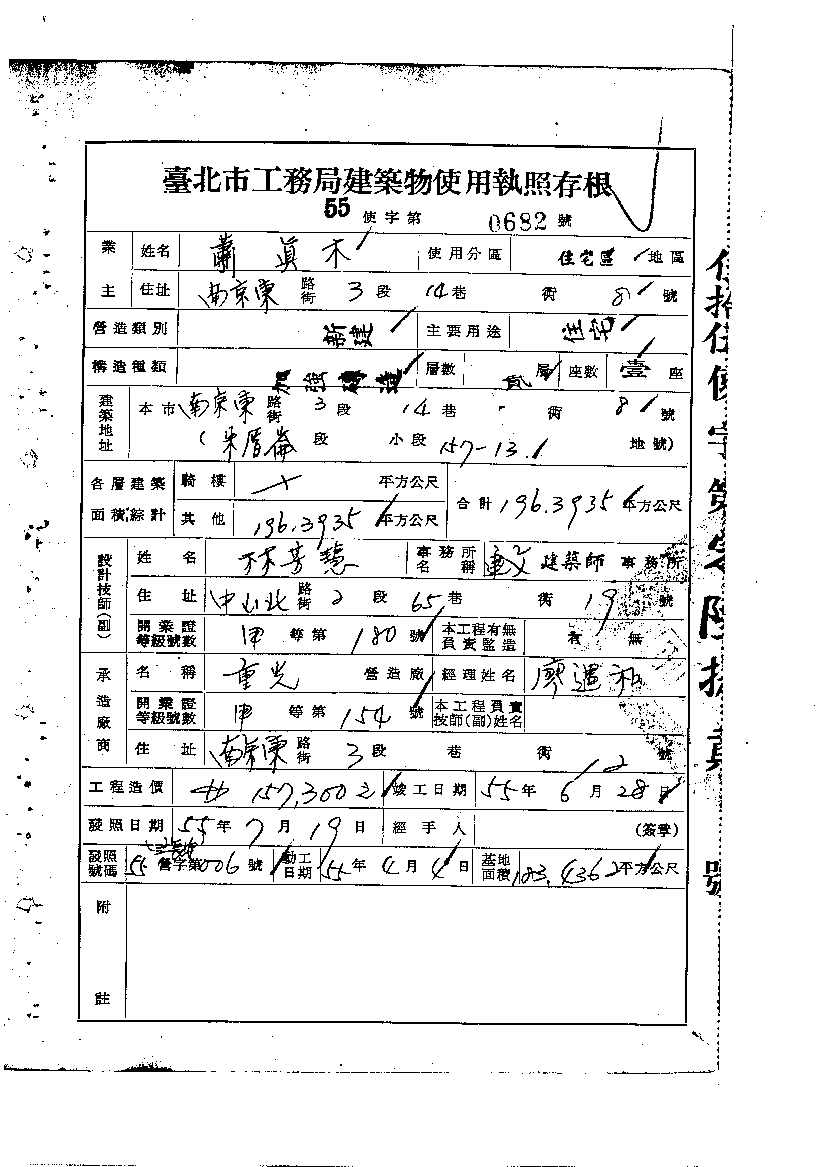 臺北市工務局建築物使用執照存根
55 使字第 0682 號
業主 姓名 蕭眞木 使用分區 住宅區 地區
住址 南京東 路街 3 段 14 巷 衖 8 號
營造類別 新建 主要用途 住宅
構造種類 加強磚造 層數 貳層 座數 壹 座
建築地址 本市 南京東 路街 3 段 14 巷 衖 8 號
(朱厝崙 段 小段 157-13 地號)
各層建築面積綜計 騎樓 平方公尺 合計 196.3935 平方公尺
其他 196.3935 平方公尺
設計技師(副) 姓名 林芳慧 事務所名稱 建築師事務所
住址 中山北 路街 2 段 65 巷 衖 19 號
開業證等級號數 甲 等第 180 號 本工程有無負責監造 有 無
承造廠商 名稱 重光 營造廠 經理姓名 廖
開業證等級號數 甲 等第 154 號 本工程負責技師(副)姓名
住址 南京東 路街 3 段 巷 衖 12 號
工程造價 157,300 竣工日期 55 年 6 月 28 日
發照日期 55 年 7 月 19 日 經手人 (簽章)
發照號碼 55 營字第 006 號 動工日期 55 年 4 月 4 日 基地面積 183.4362 平方公尺
附註
伍拾伍使字第零陸捌貳號